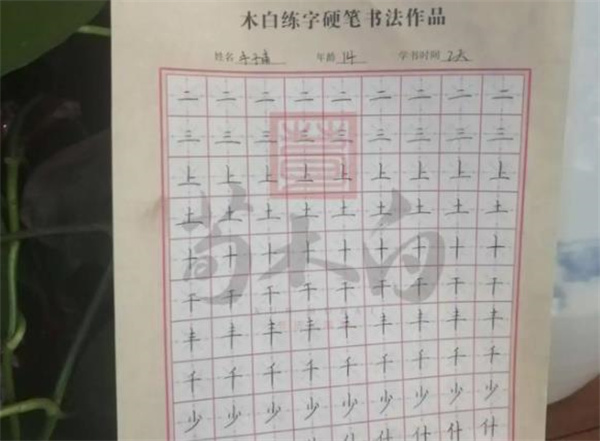 木白练字硬笔书法作品
姓名 年龄 14 学书时间 2天
二 二 二 二 二 二 二 二 二
三 三 三 三 三 三 三 三 三
上 上 上 上 上 上 上 上 上
土 土 土 土 土 土 土 土 土
十 十 十 十 十 十 十 十 十
干 干 干 干 干 干 干 干 干
丰 丰 丰 丰 丰 丰 丰 丰 丰
千 千 千 千 千 千 千 千 千
少 少 少 少 少 少 少 少 少
什 什 什 什 什
荀木白